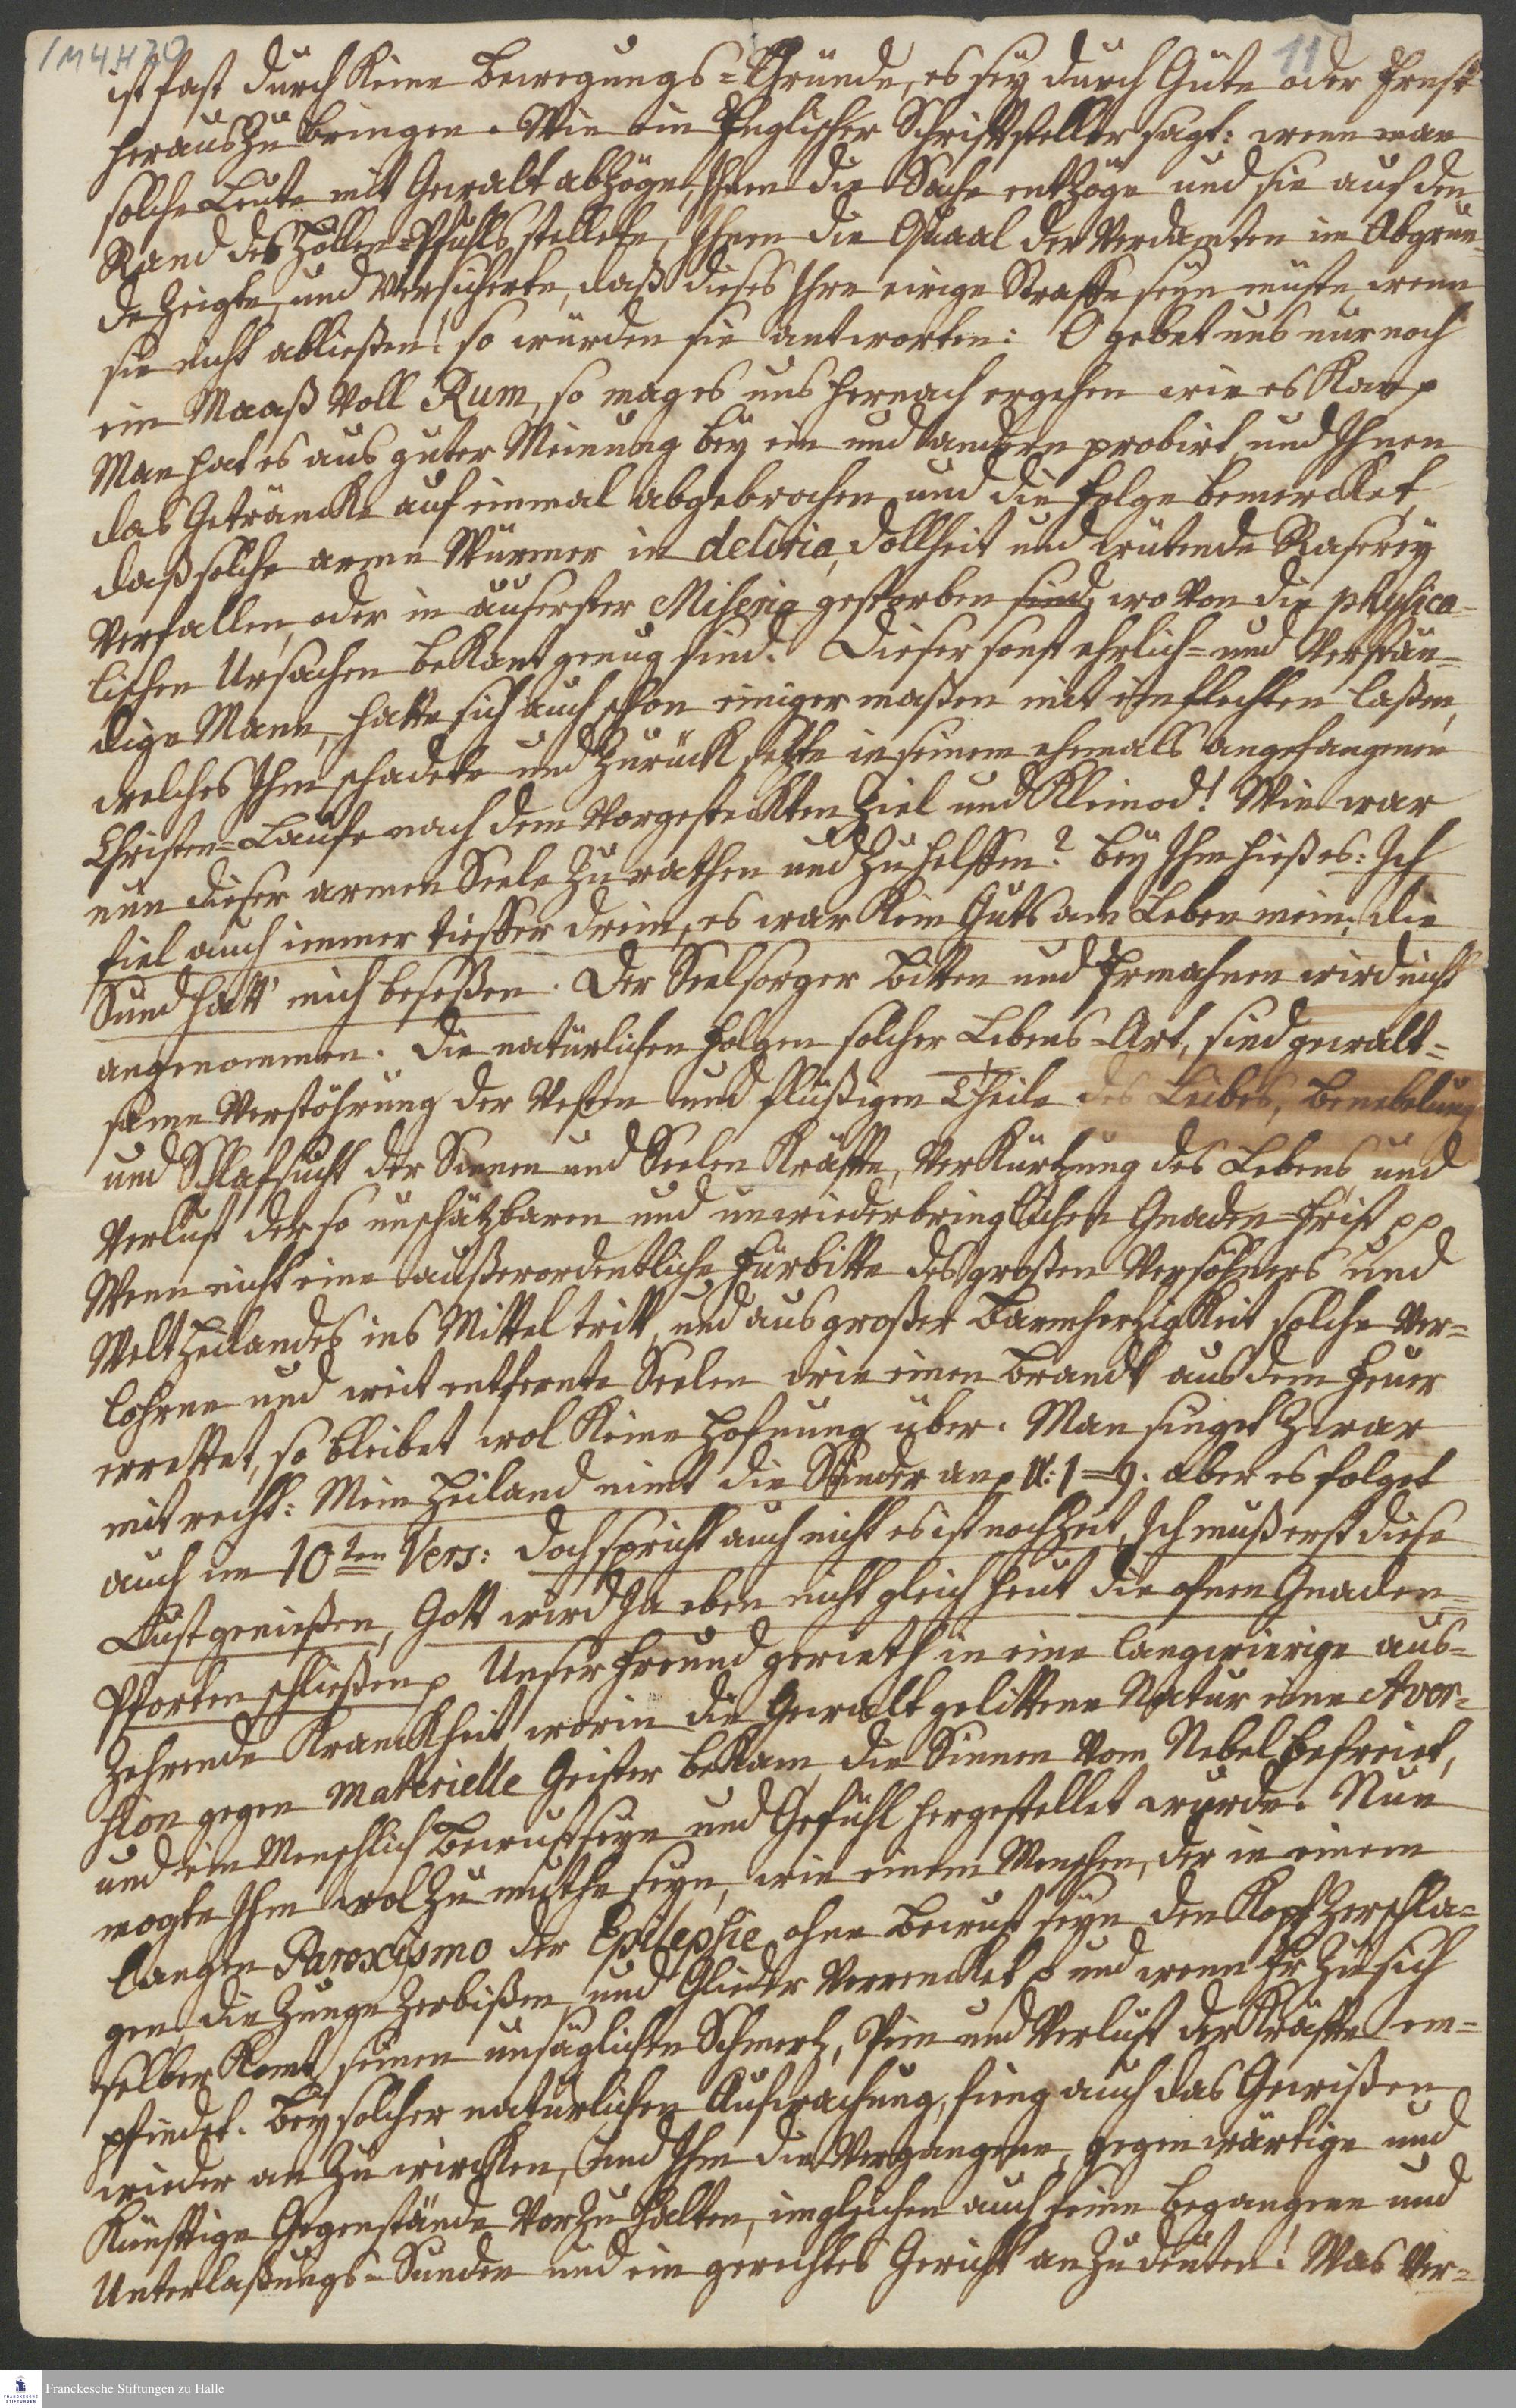 1 M 4 H 20
11
ist fast durch keine Bewegungs-Gründe, es sey durch Güte oder Ernst
heraus zu bringen. Wie ein Englischer Schriftsteller sagt: wenn man
solche Leute mit Gewalt abzöge, Ihnen die Sache entzöge und sie auf den
Rand des Höllen-Pfuhls stellete, Ihnen die Quaal der Verdamten im Abgrun-
de zeigte, und versicherte, daß dieses Ihre ewige Straffe seyn müste, wenn
sie nicht abließen! so würden sie antworten: O gebet uns nur noch
ein Maaß voll Rum, so mag es uns hernach ergehen wie es kan p
Man hat es aus guter Meinung bey ein und andern probirt, und Ihnen
das Geträncke auf einmal abgebrochen, und die Folge bemercket,
daß solche arme Würmer in deliria, Dollheit und wütende Raserey
verfallen, oder in äuserster Miseria gestorben sind, wo von die physica-
lischen Ursachen bekant genug sind. Dieser sonst ehrlich- und verstän-
dige Mann, hatte sich auch schon einiger maßen mit einflechten laßen,
welches Ihm schadete und zurück setzte in seinem ehemals angefangenen
Christen-Lauffe nach dem vorgesteckten Ziel und Kleinod! Wie war
nun dieser armen Seele zu rathen und zu helffen? bey Ihm hieß es: Ich
fiel auch immer tieffer drein, es war kein Guts am Leben mein, die
Sünd hatt' mich beseßen. Der Seelsorger Bitten und Ermahnen wird nicht
angenommen. Die natürlichen Folgen solcher Lebens-Art, sind gewalt-
same Verstöhrung der Vesten und flüßigen Theile des Leibes, Benebelung
und Schlafsucht der Sinnen und Seelen Kräffte, Verkürtzung des Lebens, und
Verlust der so unschätzbaren und unwiederbringlichen Gnaden-Frist pp
Wenn nicht eine außerordentliche Fürbitte des großen Versöhners und
Welt Heilandes ins Mittel tritt, und aus großer Barmherzigkeit solche ver-
lohrne und weit entfernte Seelen wie einen Brandt aus dem Feuer
errettet, so bleibet wol keine Hofnung über. Man singet zwar
mit recht: Mein Heiland nimt die Sünder an p V: 1=9. aber es folget
auch im 10ten Vers: Doch spricht auch nicht es ist noch Zeit, Ich muß erst diese
Lust genießen, Gott wird ja eben nicht gleich heut die ofnen Gnaden-
Pforten schließen p Unser Freund gerieth in eine langwierige aus-
zehrende Kranckheit, worin die Gewalt gelittene Natur eine Aver-
sion gegen materielle Geister bekam, die Sinnen vom Nebel befreiet,
und ein Menschlich Bewustseyn und Gefühl hergestellet wurde. Nun
mogte Ihm wol zu muthe seyn, wie einem Menschen, der in einem
langen Paroxismo der Epilepsie ohne Bewust seyn den Kopf zerschla-
gen, die Zunge zerbißen, und Glieder verrencket p und wenn Er zu sich
selber komt, seinen unsäglichen Schmertz, Pein und Verlust der Kräffte em-
pfindet. Bey solcher natürlichen Aufwachung, fieng auch das Gewißen
wieder an zu wircken, und Ihm die Vergangene, gegenwärtige und
künfftige Gegenstände vorzuhalten, imgleichen auch seine begangene und
Unterlaßungs-Sünden und ein gerechtes Gericht anzudeuten! Was ver-
Franckesche Stiftungen zu Halle